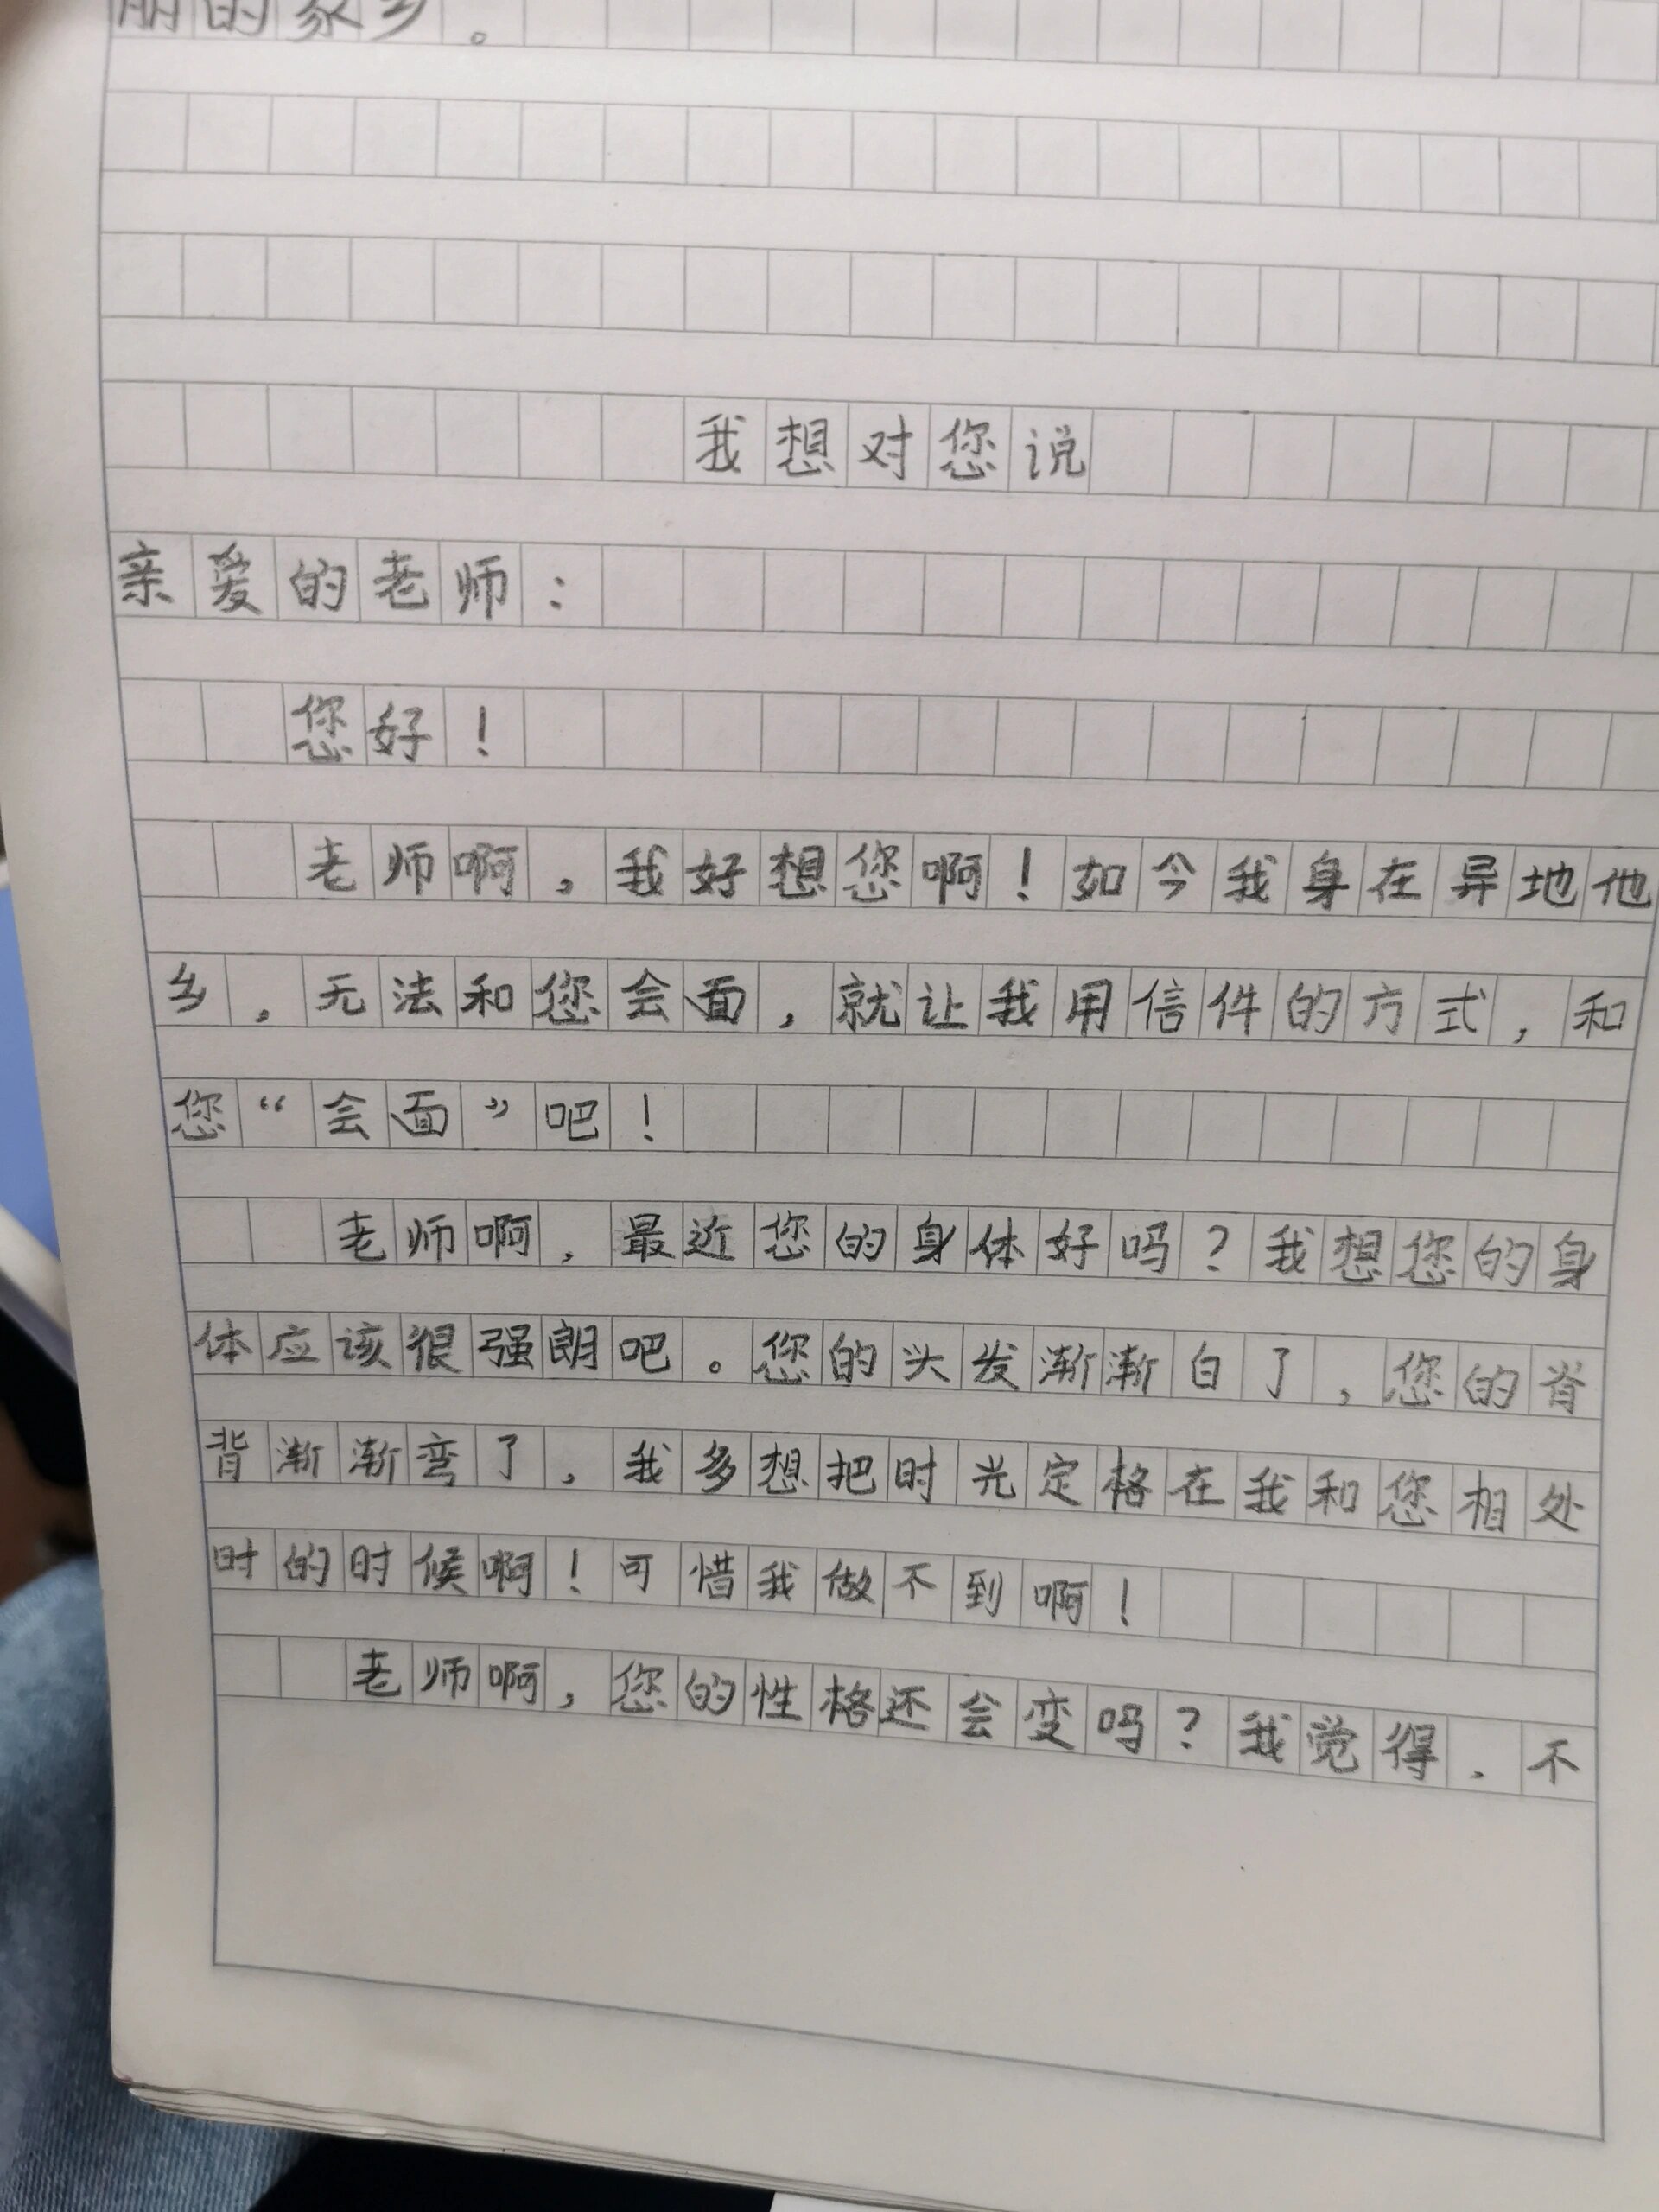 丽的家乡。
我想对您说
亲爱的老师：
您好！
老师啊，我好想您啊！如今我身在异地他
乡，无法和您会面，就让我用信件的方式，和
您“会面”吧！
老师啊，最近您的身体好吗？我想您的身
体应该很强朗吧。您的头发渐渐白了，您的脊
背渐渐弯了，我多想把时光定格在我和您相处
时的时候啊！可惜我做不到啊！
老师啊，您的性格还会变吗？我觉得，不